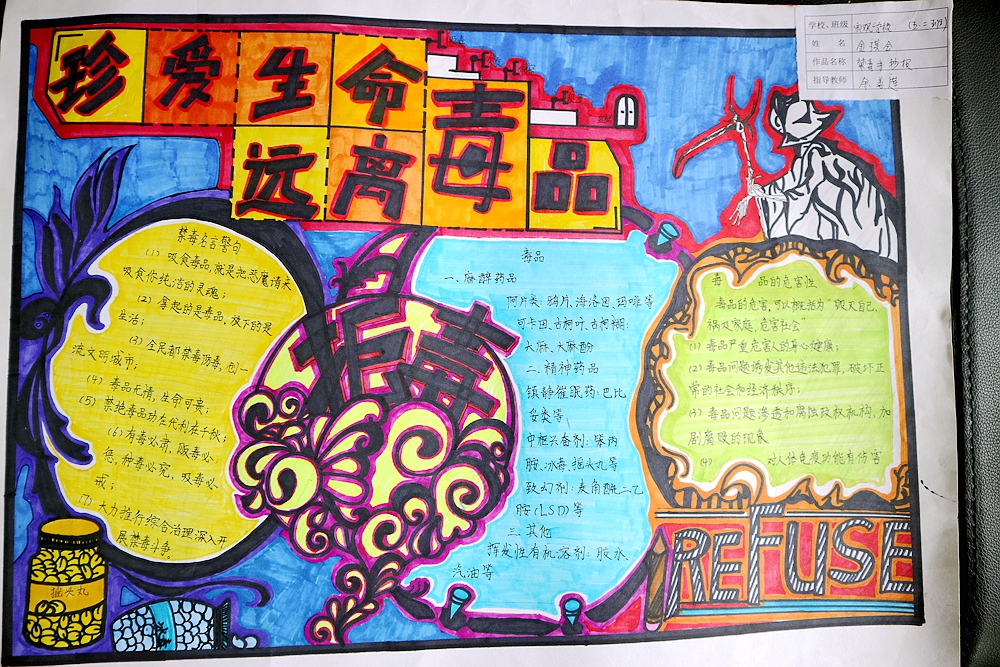 珍爱生命
远离毒品
学校、班级
(5.二班)
姓 名
作品名称 禁毒手抄报
指导教师
禁毒名言警句
(1) 吸食毒品,就是把恶魔请来
吸食你纯洁的灵魂;
(2) 拿起的是毒品,放下的是
生活;
(3) 全民都禁毒防毒,创一
流文明城市;
(4) 毒品无情,生命可贵;
(5) 禁绝毒品功在代利在千秋;
(6) 有毒必肃,贩毒必
惩,种毒必究,吸毒必
戒;
(7) 大力推行综合治理深入开
展禁毒斗争。
摇头丸
拒毒
毒品
一、麻醉药品
阿片类:鸦片,海洛因,玛啡等
可卡因、古柯叶、古柯糊:
大麻、大麻酚
二、精神药品
镇静催眠药:巴比
妥类等
中枢兴奋剂:苯丙
胺、冰毒、摇头丸等
致幻剂:麦角酰二乙
胺(LSD)等
三、其他
挥发性有机溶剂:胶水、
汽油等
毒 品的危害性
毒品的危害,可以概活为"毁灭自己,
祸及家庭,危害社会"
(1) 毒品严重危害人的身心健康;
(2) 毒品问题诱发其他违法犯罪,破坏正
常的社会和经济秩序;
(3) 毒品问题渗透和腐蚀政权机构,加
剧腐败的现象
(4) 对人体免疫功能有伤害
REFUSE